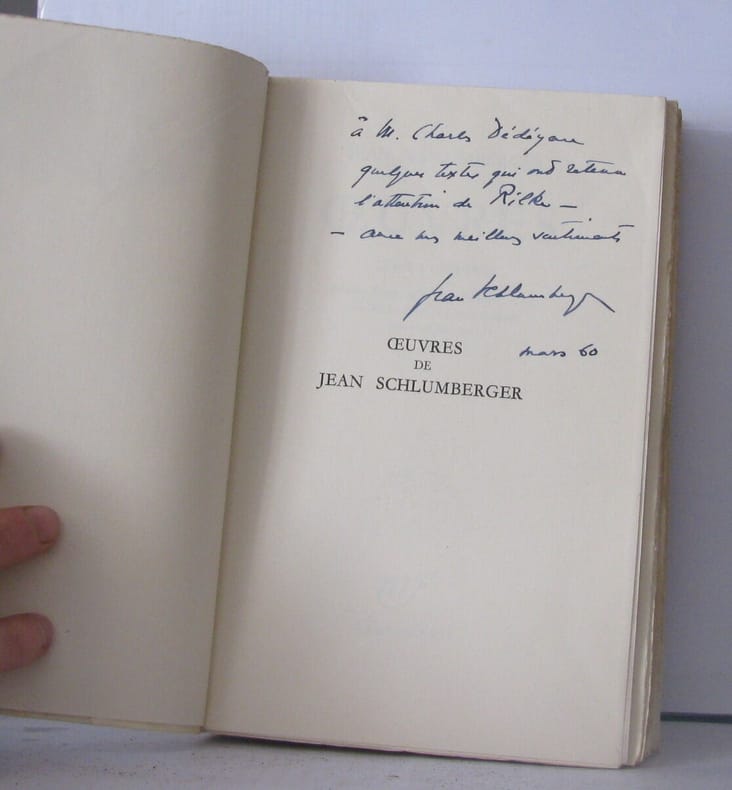 à M. Charles Dédéyan
quelques textes qui ont retenu
l'attention de Rilke —
— avec mes meilleurs sentiments
Jean Schlumberger
mars 60
ŒUVRES
DE
JEAN SCHLUMBERGER